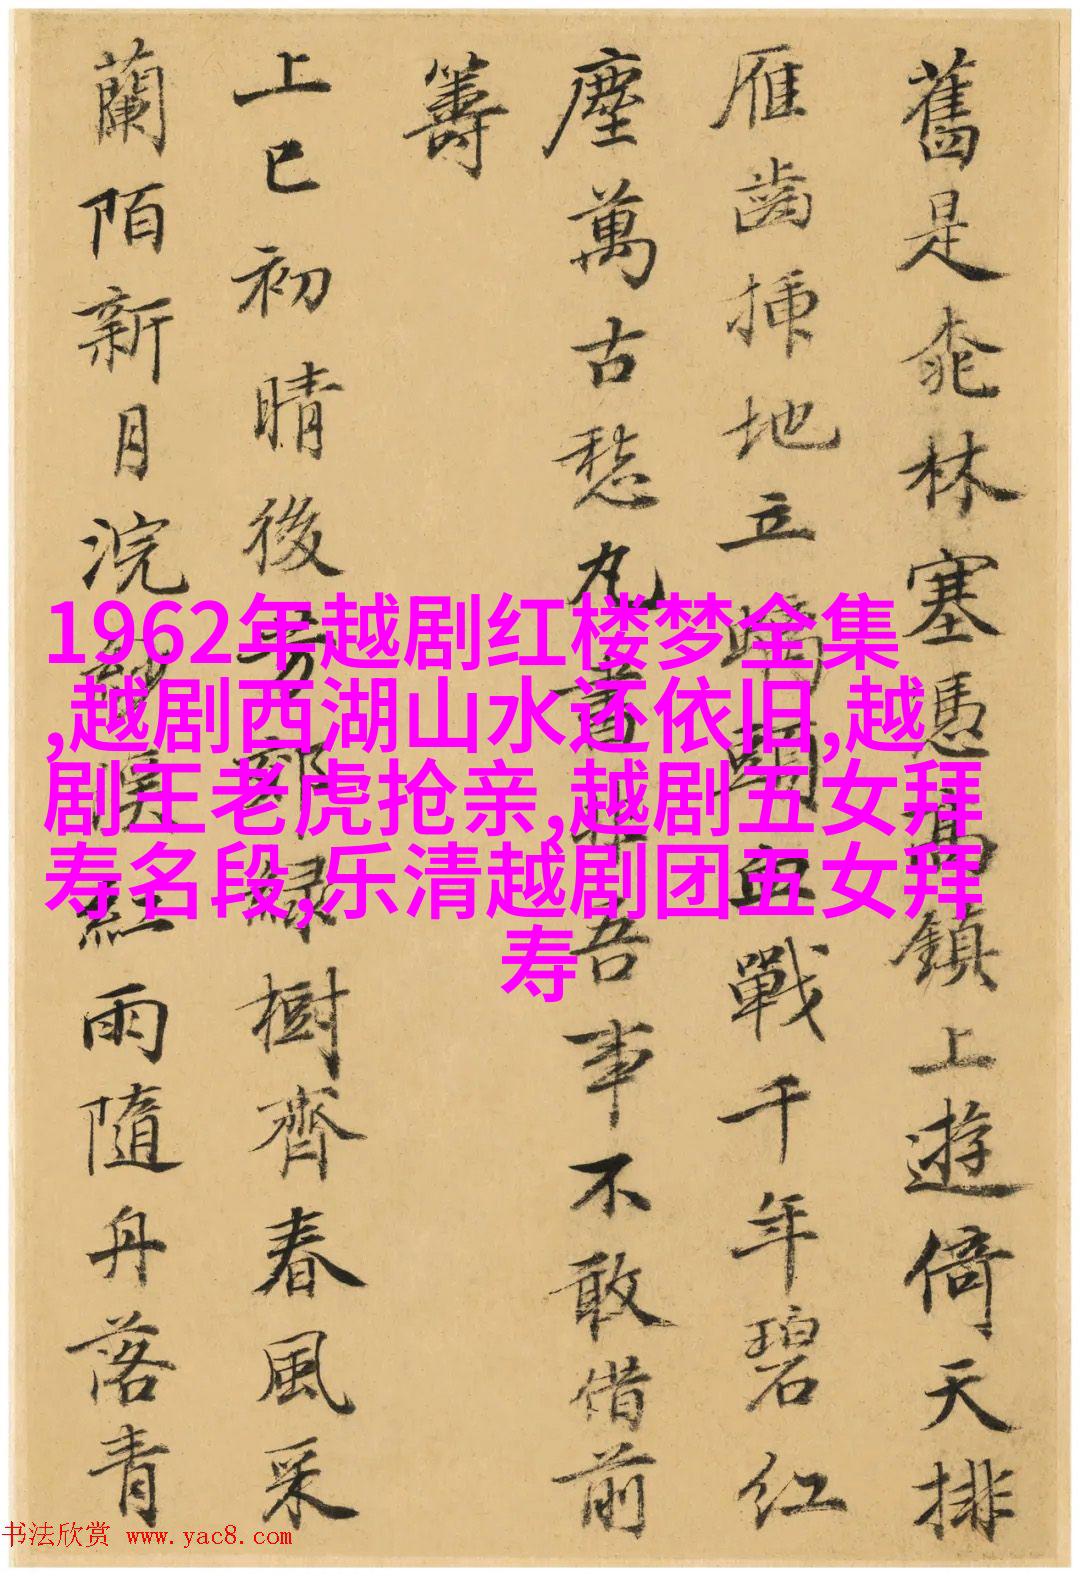 舊是兆林塞憑高鎮上遊倚天排
雁齒插地立頭血戰千年碧紅
塵萬古愁丸書吾事不敢借前
籌
上巳初晴後芳郊綠樹齊春風采
蘭陌新月浣溪紅雨隨舟落青
1962年越剧红楼梦全集
,越剧西湖山水还依旧,越
剧王老虎抢亲,越剧五女拜
寿名段,乐清越剧团五女拜
寿
书法欣赏 www.yac8.com